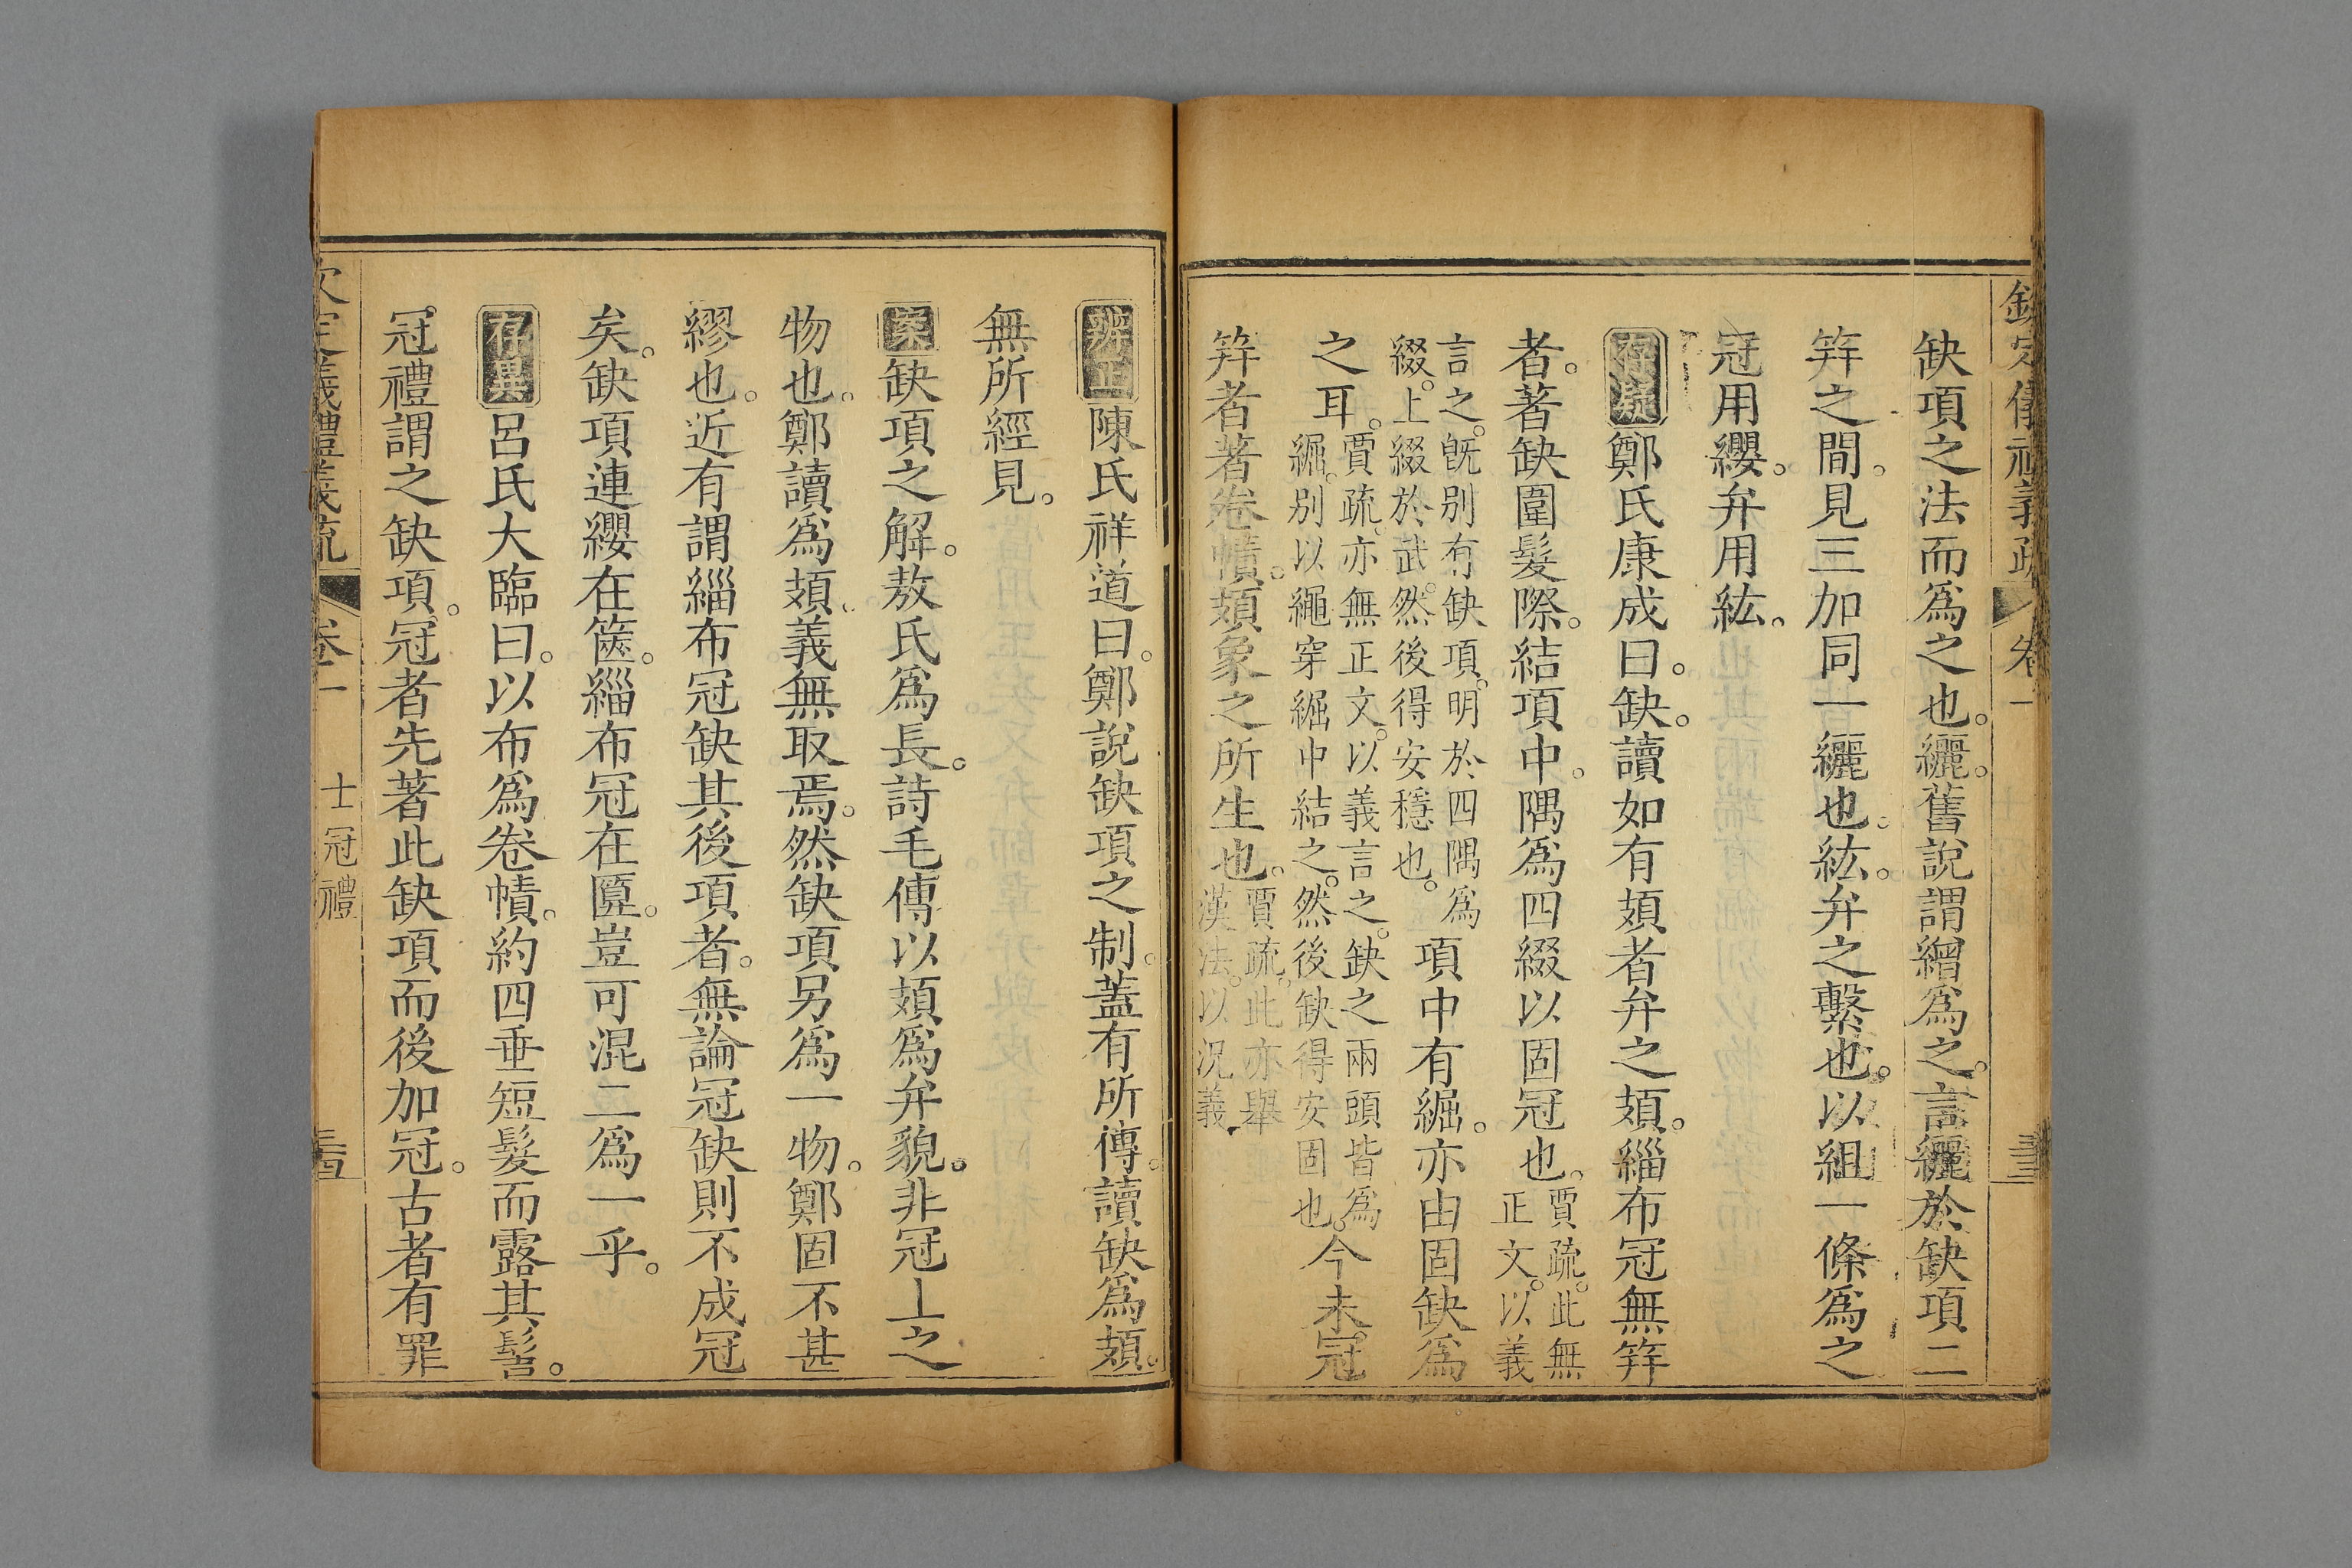 缺項之法而爲之也。纚。舊說謂繒爲之。言纚於缺項二
笄之間。見三加同一纚也。紘。弁之繫也。以組一條爲之
冠用纓。弁用紘。
存疑鄭氏康成曰。缺。讀如有頍者弁之頍。緇布冠無笄
者。著缺圍髮際。結項中。隅爲四綴以固冠也。賈疏。此無正文。以義
言之。旣別有缺項。明於四隅爲綴。上綴於武。然後得安穩也。項中有䋎。亦由固缺爲
之耳。賈疏。亦無正文。以義言之。缺之兩頭皆爲䋎。別以繩穿䋎中結之。然後缺得安固也。今未冠
笄者著卷幘。頍象之所生也。賈疏。此亦舉漢法。以況義
辨正陳氏祥道曰。鄭說缺項之制。蓋有所傳。讀缺爲頍。
無所經見。
案缺項之解。敖氏爲長。詩毛傳以頍爲弁貌。非冠上之
物也。鄭讀爲頍。義無取焉。然缺項另爲一物。鄭固不甚
繆也。近有謂緇布冠缺其後項者。無論冠缺則不成冠
矣。缺項連纓在篋。緇布冠在匴。豈可混二爲一乎。
存異呂氏大臨曰。以布爲卷幘。約四垂短髮而露其髻。
冠禮謂之缺項。冠者先著此缺項而後加冠。古者有罪
卷一 士冠禮